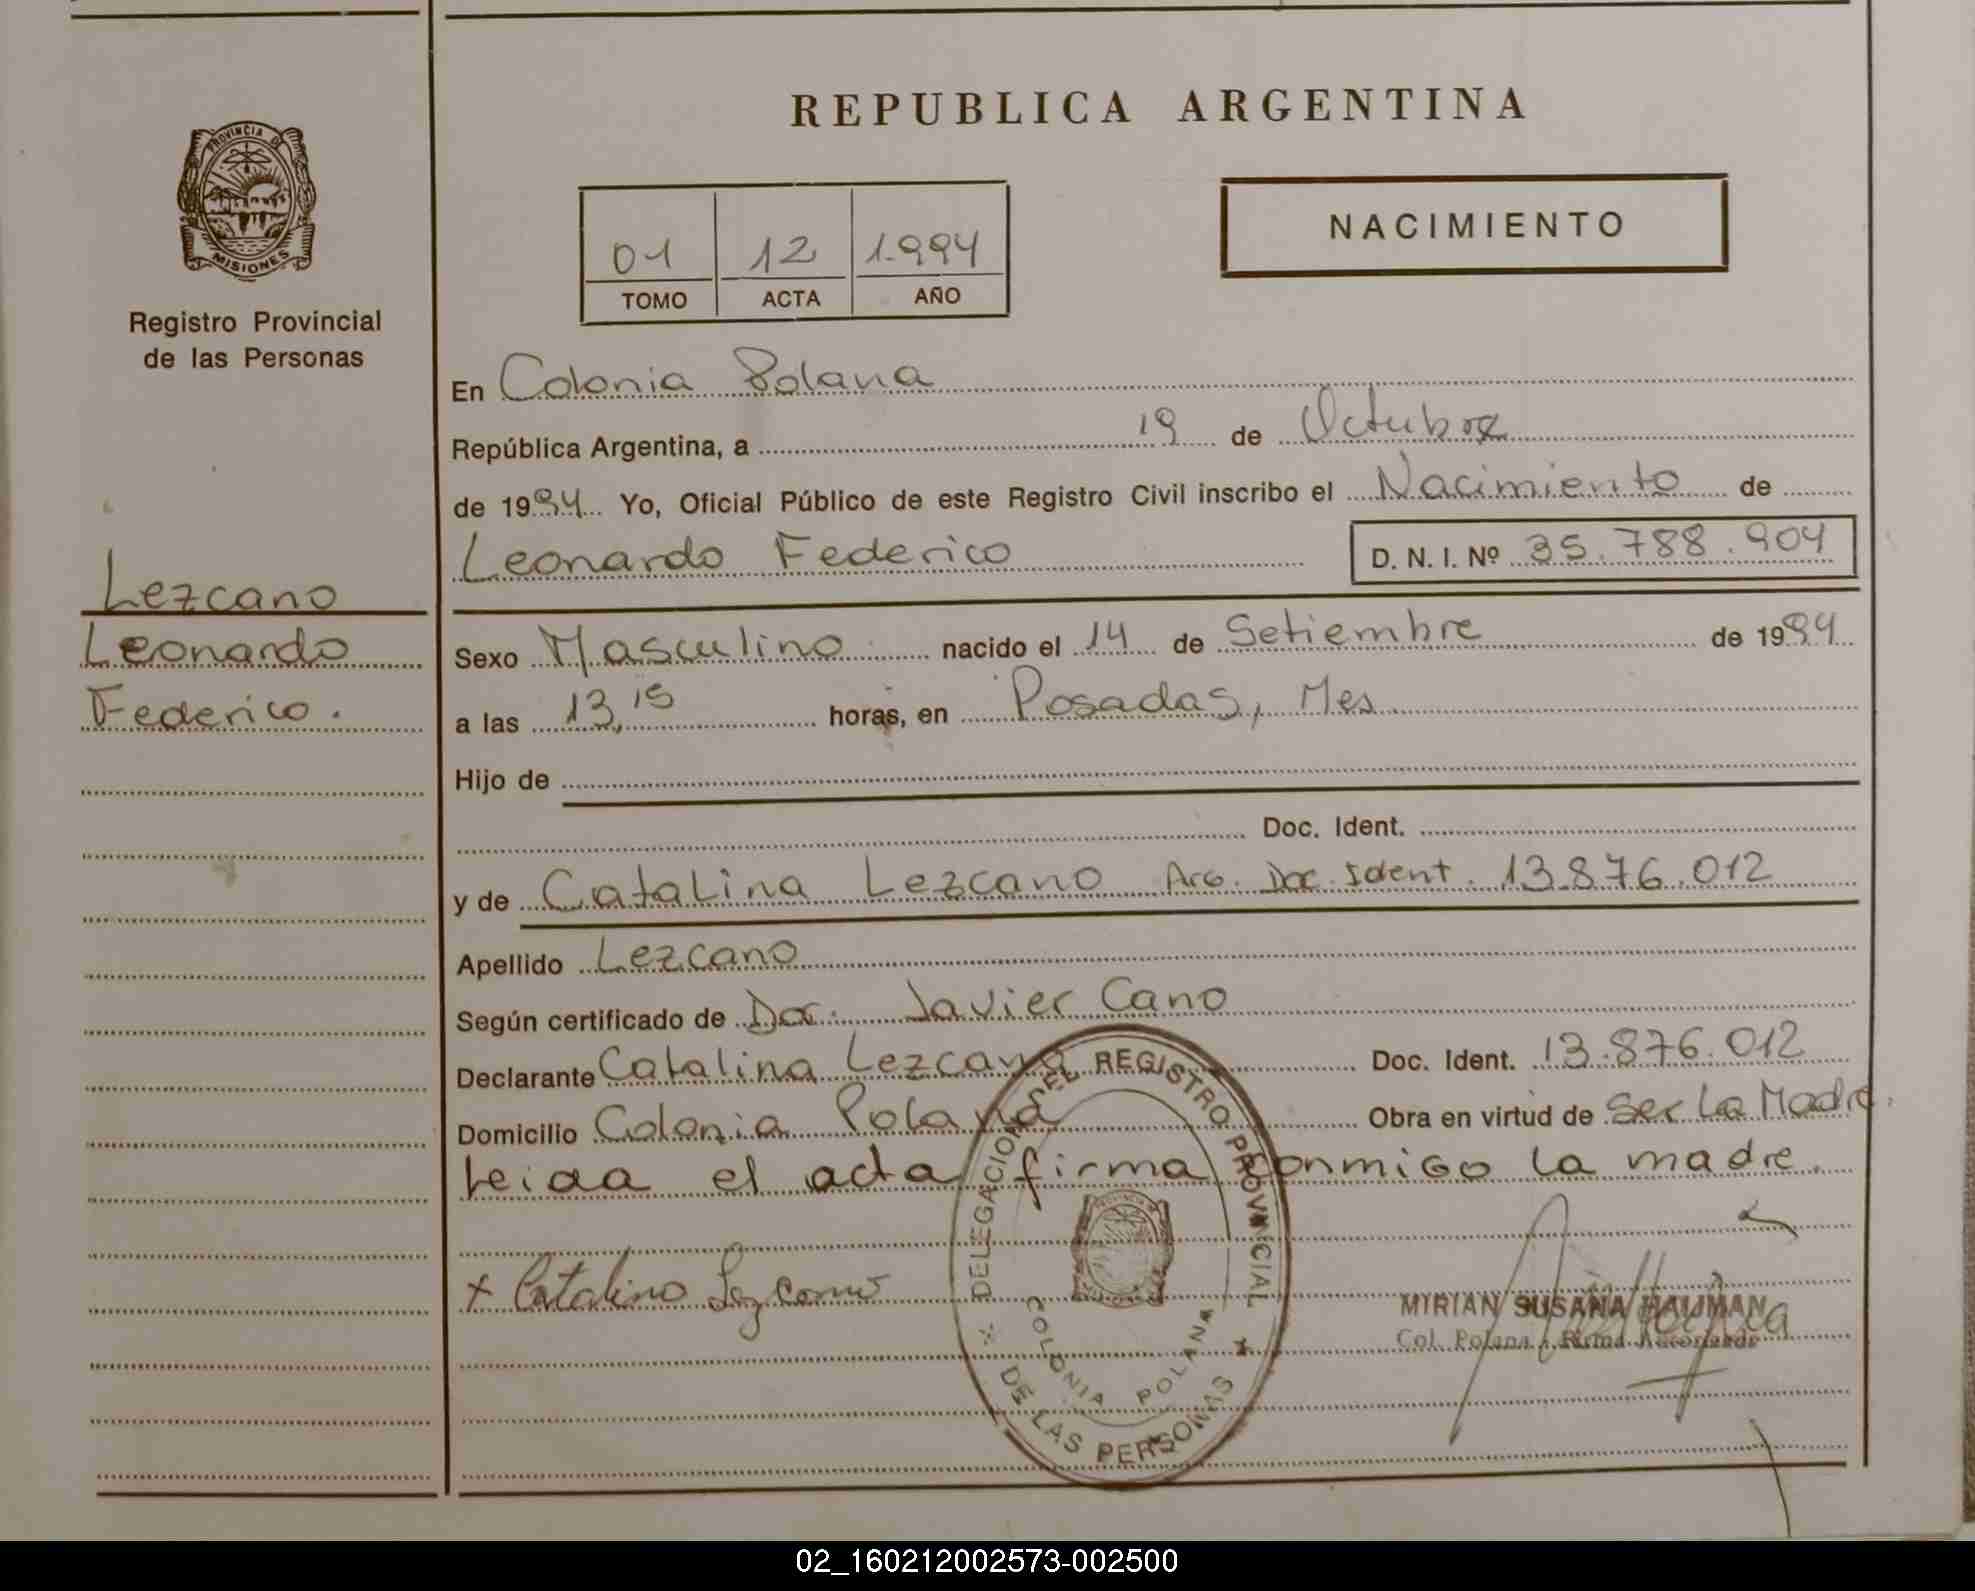 REPUBLICA ARGENTINA
PROVINCIA DE
MISIONES
Registro Provincial
de las Personas
NACIMIENTO
01 12 1.994
TOMO ACTA AÑO
En Colonia Polana
República Argentina, a 19 de Octubre
de 1994 Yo, Oficial Público de este Registro Civil inscribo el Nacimiento de
Leonardo Federico D. N. I. Nº 35.788.904
Lezcano
Leonardo
Federico.
Sexo Masculino nacido el 14 de Setiembre de 1994
a las 13,15 horas, en Posadas, Mes
Hijo de
Doc. Ident.
y de Catalina Lezcano Arg. Doc. Ident. 13.876.012
Apellido Lezcano
Según certificado de Doc. Javier Cano
Declarante Catalina Lezcano Doc. Ident. 13.876.012
Domicilio Colonia Polana Obra en virtud de Ser La Madre.
Leida el acta firma conmigo la madre.
+ Catalina Lezcano
DELEGACION DEL REGISTRO PROVINCIAL
DE LAS PERSONAS
COLONIA POLANA
MIRIAN SUSANA
Col. Polana Firma Autorizada
02_160212002573-002500